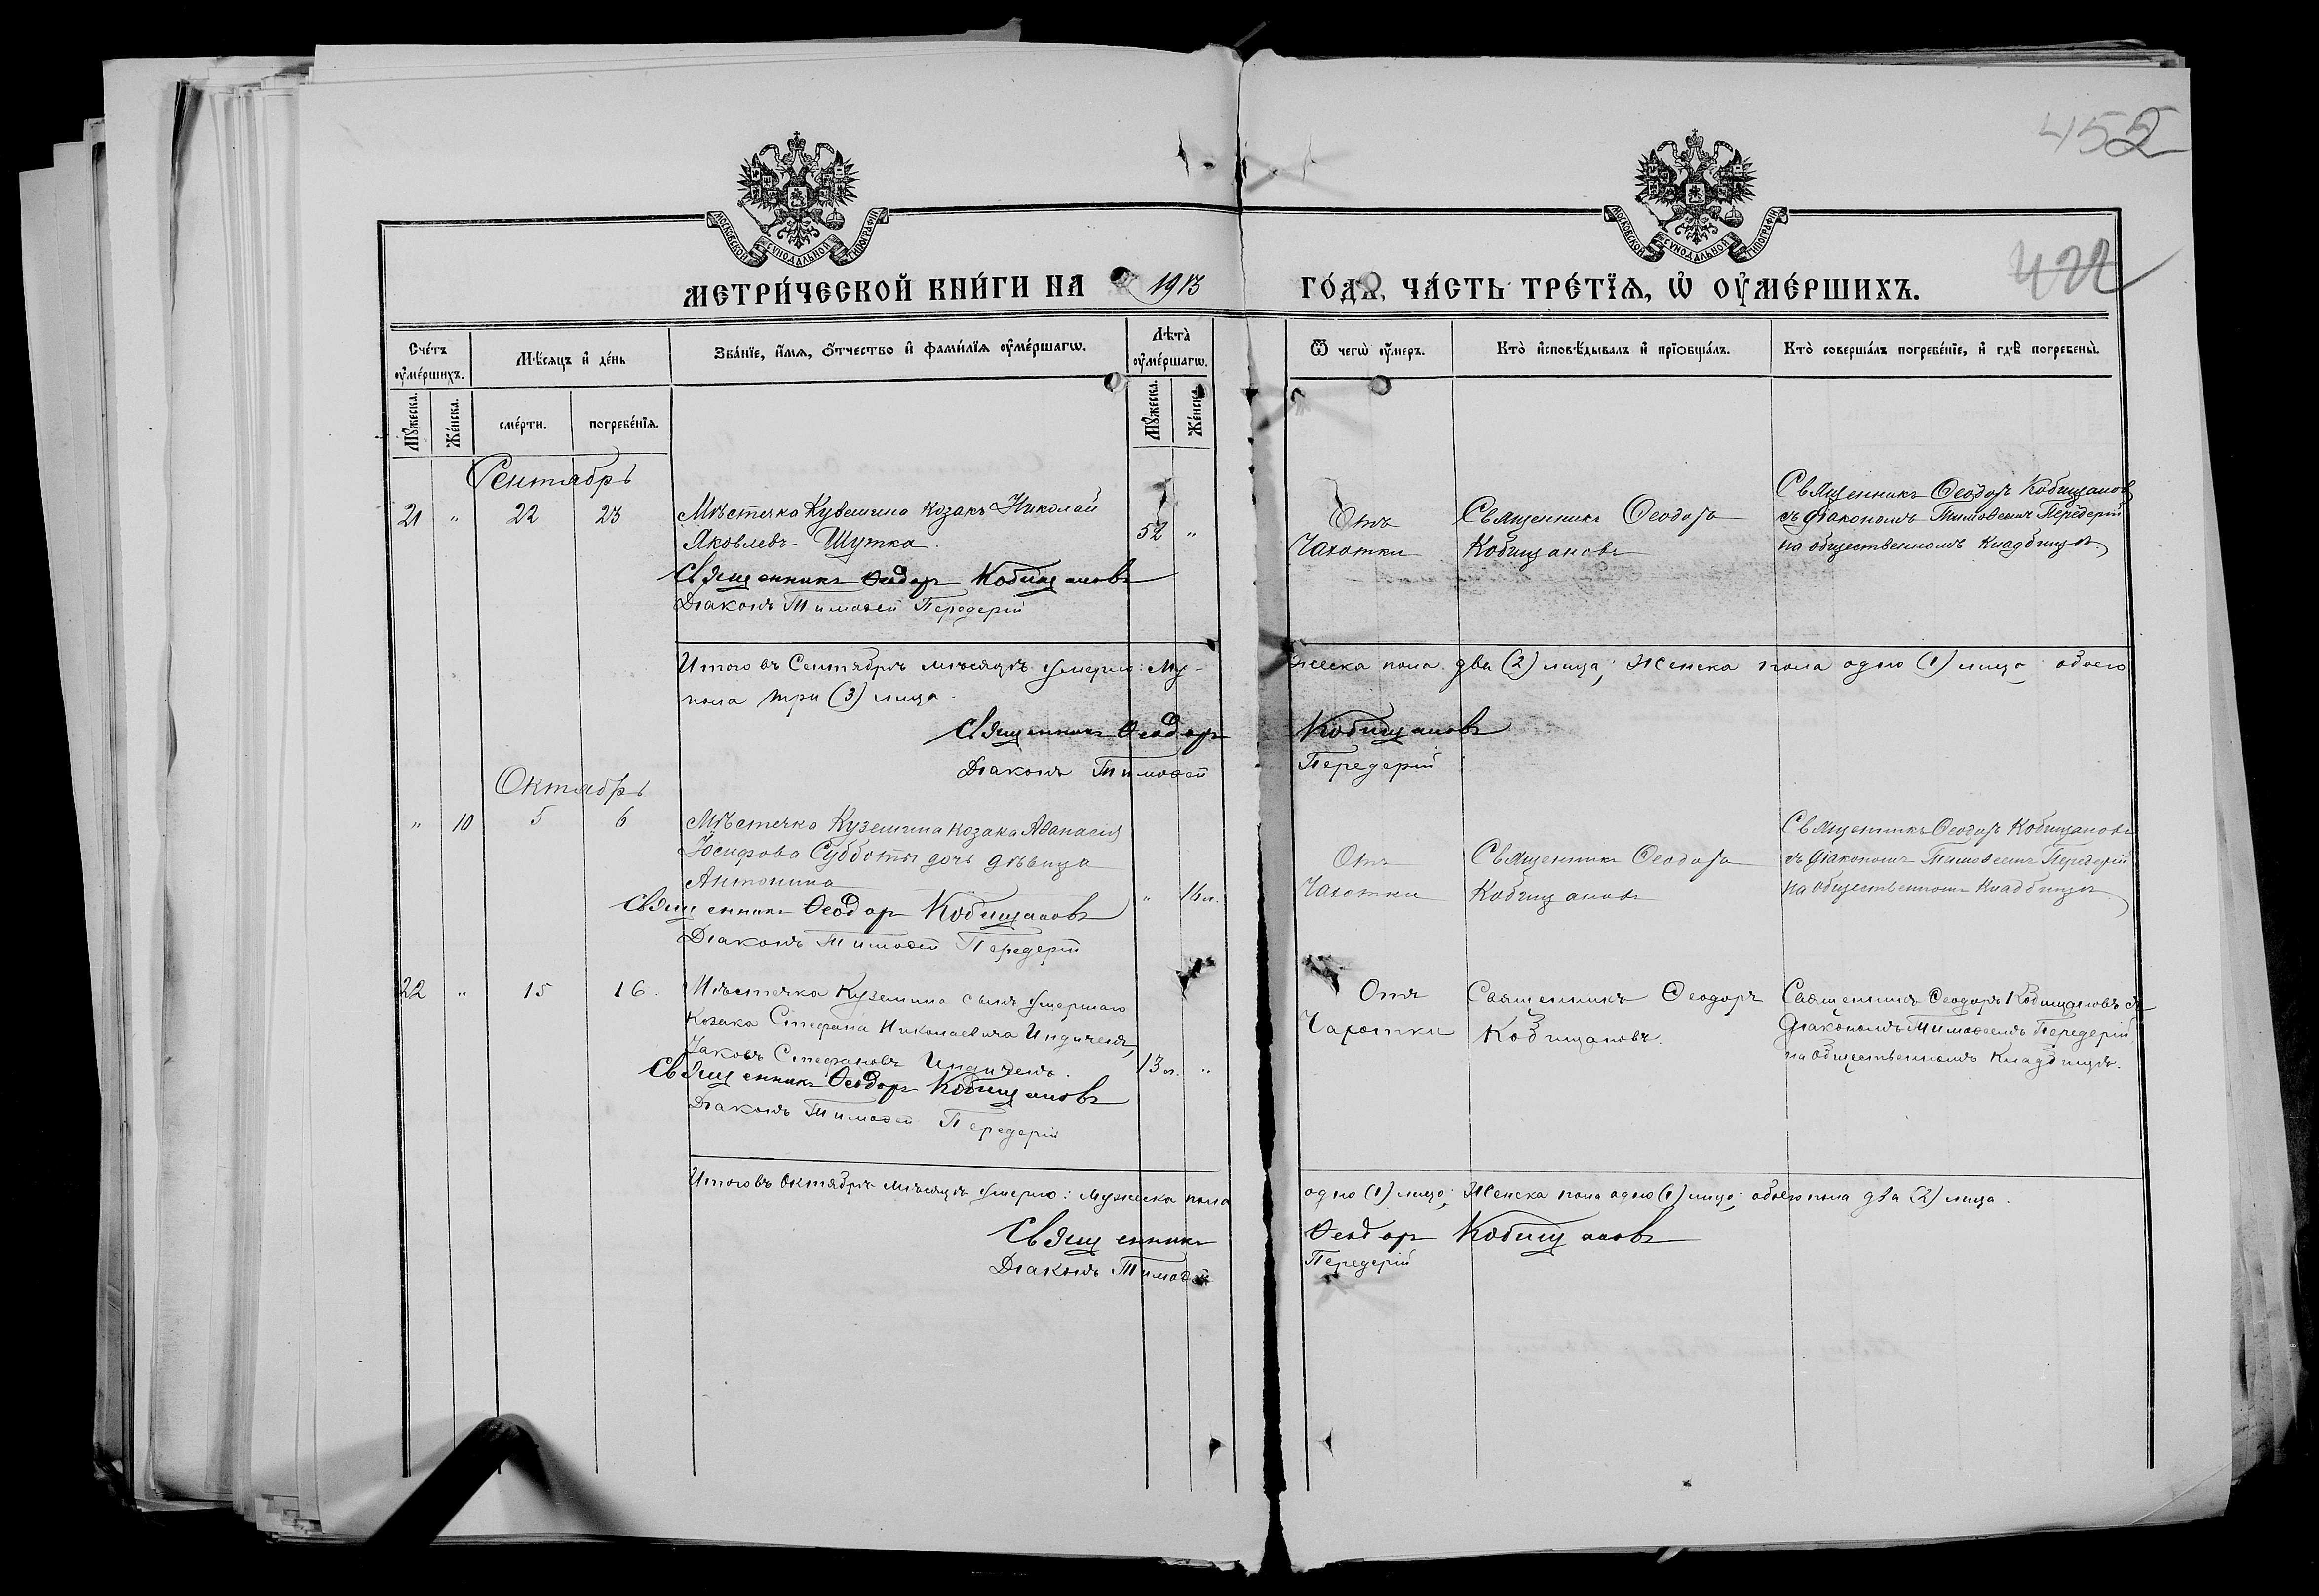 452
422
МОСКОВСКОЙ СѴНОДАЛЬНОЙ ТИПОГРАФІИ
МОСКОВСКОЙ СѴНОДАЛЬНОЙ ТИПОГРАФІИ
МЕТРИ́ЧЕСКОЙ КНИ́ГИ НА 1913
ГО́ДЪ, ЧА́СТЬ ТРЕ́ТЇѦ, Ѽ ОУ҆МЕ́РШИХЪ.
Сче́тъ оу҆ме́ршихъ.
Мѣ́сѧцъ и҆ де́нь
Зва́нїе, и҆́мѧ, ѻ҆́тчество и҆ фами́лїѧ оу҆ме́ршагѡ.
Лѣ́та̀ оу҆ме́ршагѡ.
Ѿ чегѡ̀ оу҆́меръ.
Кто̀ и҆сповѣ́дывалъ и҆ прїѡбща́лъ.
Кто̀ соверша́лъ погребе́нїе, и҆ гдѣ̀ погребены̀.
Мꙋ́жеска.
Же́нска.
сме́рти.
погребе́нїѧ.
Мꙋ́жеска.
Же́нска.
Сентябрь
21 " 22 23 Мѣстечка Куземина козакъ Николай
Яковлевъ Шутка. 52 "
Священникъ Ѳеодоръ Кобищановъ
Діаконъ Тимоѳей Передерій
Отъ
Чахотки
Священникъ Ѳеодоръ
Кобищановъ
Священникъ Ѳеодоръ Кобищановъ
съ діакономъ Тимоѳеемъ Передерій
на общественномъ кладбищѣ.
Итого въ Сентябрѣ мѣсяцѣ умерло: Му-
жеска пола два (2) лица; Женска пола одно (1) лицо обоего
пола три (3) лица.
Священникъ Ѳеодоръ Кобищановъ
Діаконъ Тимоѳей Передерій
Октябрь
" 10 5 6 Мѣстечка Куземина козака Аѳанасія
Іосифова Субботы дочь дѣвица
Антонина " 16 л.
Священникъ Ѳеодоръ Кобищановъ
Діаконъ Тимоѳей Передерій
Отъ
Чахотки
Священникъ Ѳеодоръ
Кобищановъ
Священникъ Ѳеодоръ Кобищановъ
съ діакономъ Тимоѳеемъ Передерій
на общественномъ кладбищѣ
22 " 15 16. Мѣстечка Куземина сынъ умершаго
козака Стефана Николаевича Индиченъ,
Іаковъ Стефановъ Индиченъ. 13 л. "
Священникъ Ѳеодоръ Кобищановъ
Діаконъ Тимоѳей Передерій
Отъ
Чахотки
Священникъ Ѳеодоръ
Кобищановъ.
Священникъ Ѳеодоръ Кобищановъ съ
Діакономъ Тимоѳеемъ Передерій
на общественномъ кладбищѣ.
Итого въ Октябрѣ мѣсяцѣ умерло: мужеска пола
одно (1) лицо; Женска пола одно (1) лицо; обоего пола два (2) лица.
Священникъ Ѳеодоръ Кобищановъ
Діаконъ Тимоѳей Передерій